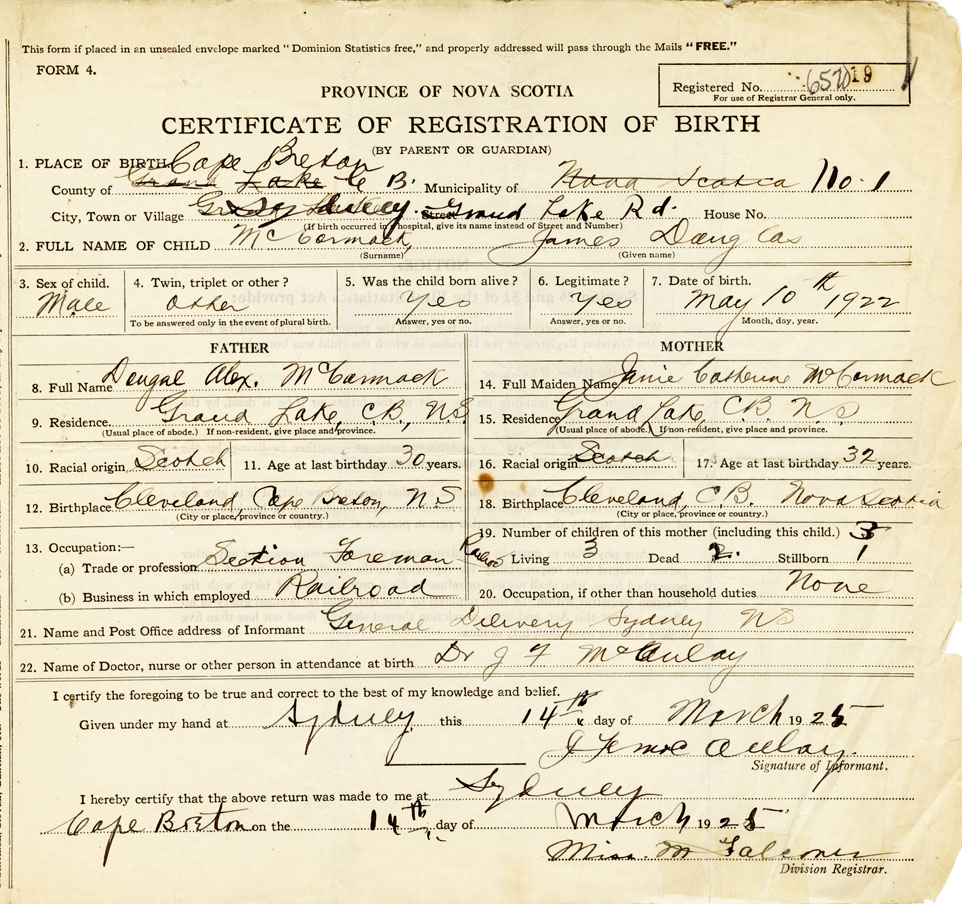 This form if placed in an unsealed envelope marked "Dominion Statistics free," and properly addressed will pass through the Mails "FREE."
FORM 4.
Registered No. 19
For use of Registrar General only.
PROVINCE OF NOVA SCOTIA
CERTIFICATE OF REGISTRATION OF BIRTH
(BY PARENT OR GUARDIAN)
1. PLACE OF BIRTH Cape Breton
County of Grand Lake C B. Municipality of Nova Scotia No. 1
City, Town or Village Sydney. Street Grand Lake Rd. House No.
(If birth occurred in hospital, give its name instead of Street and Number)
2. FULL NAME OF CHILD McCormack, James Douglas
(Surname) (Given name)
3. Sex of child. 4. Twin, triplet or other? 5. Was the child born alive? 6. Legitimate? 7. Date of birth.
Male Other Yes Yes May 10th 1922
To be answered only in the event of plural birth. Answer, yes or no. Answer, yes or no. Month, day, year.
FATHER MOTHER
8. Full Name Dougal Alex. McCormack 14. Full Maiden Name Janie Catherine McCormack
9. Residence Grand Lake, C.B., N.S 15. Residence Grand Lake, C.B. N S
(Usual place of abode.) If non-resident, give place and province. (Usual place of abode.) If non-resident, give place and province.
10. Racial origin Scotch 11. Age at last birthday 30 years. 16. Racial origin Scotch 17. Age at last birthday 32 years.
12. Birthplace Cleveland, Cape Breton, N.S 18. Birthplace Cleveland, C.B. Nova Scotia
(City or place, province or country.) (City or place, province or country.)
13. Occupation:— 19. Number of children of this mother (including this child.)
(a) Trade or profession Section Foreman Living 3 Dead 2. Stillborn 1
(b) Business in which employed Railroad 20. Occupation, if other than household duties None
21. Name and Post Office address of Informant General Delivery Sydney NS
22. Name of Doctor, nurse or other person in attendance at birth Dr J F McAulay
I certify the foregoing to be true and correct to the best of my knowledge and belief.
Given under my hand at Sydney this 14th day of March 1925
J F MacAulay.
Signature of Informant.
I hereby certify that the above return was made to me at Sydney
Cape Breton on the 14th day of March 1925
Miss. M Falconer
Division Registrar.